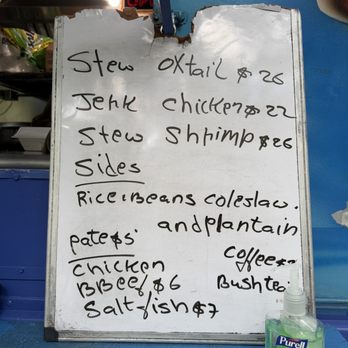 Stew oxtail $26
Jerk chicken $22
Stew Shrimp $26
Sides
Rice & Beans coleslaw.
and plantain
pate$s:
chicken
BBeef $6
Salt-fish $7
coffee
Bush tei
Purell